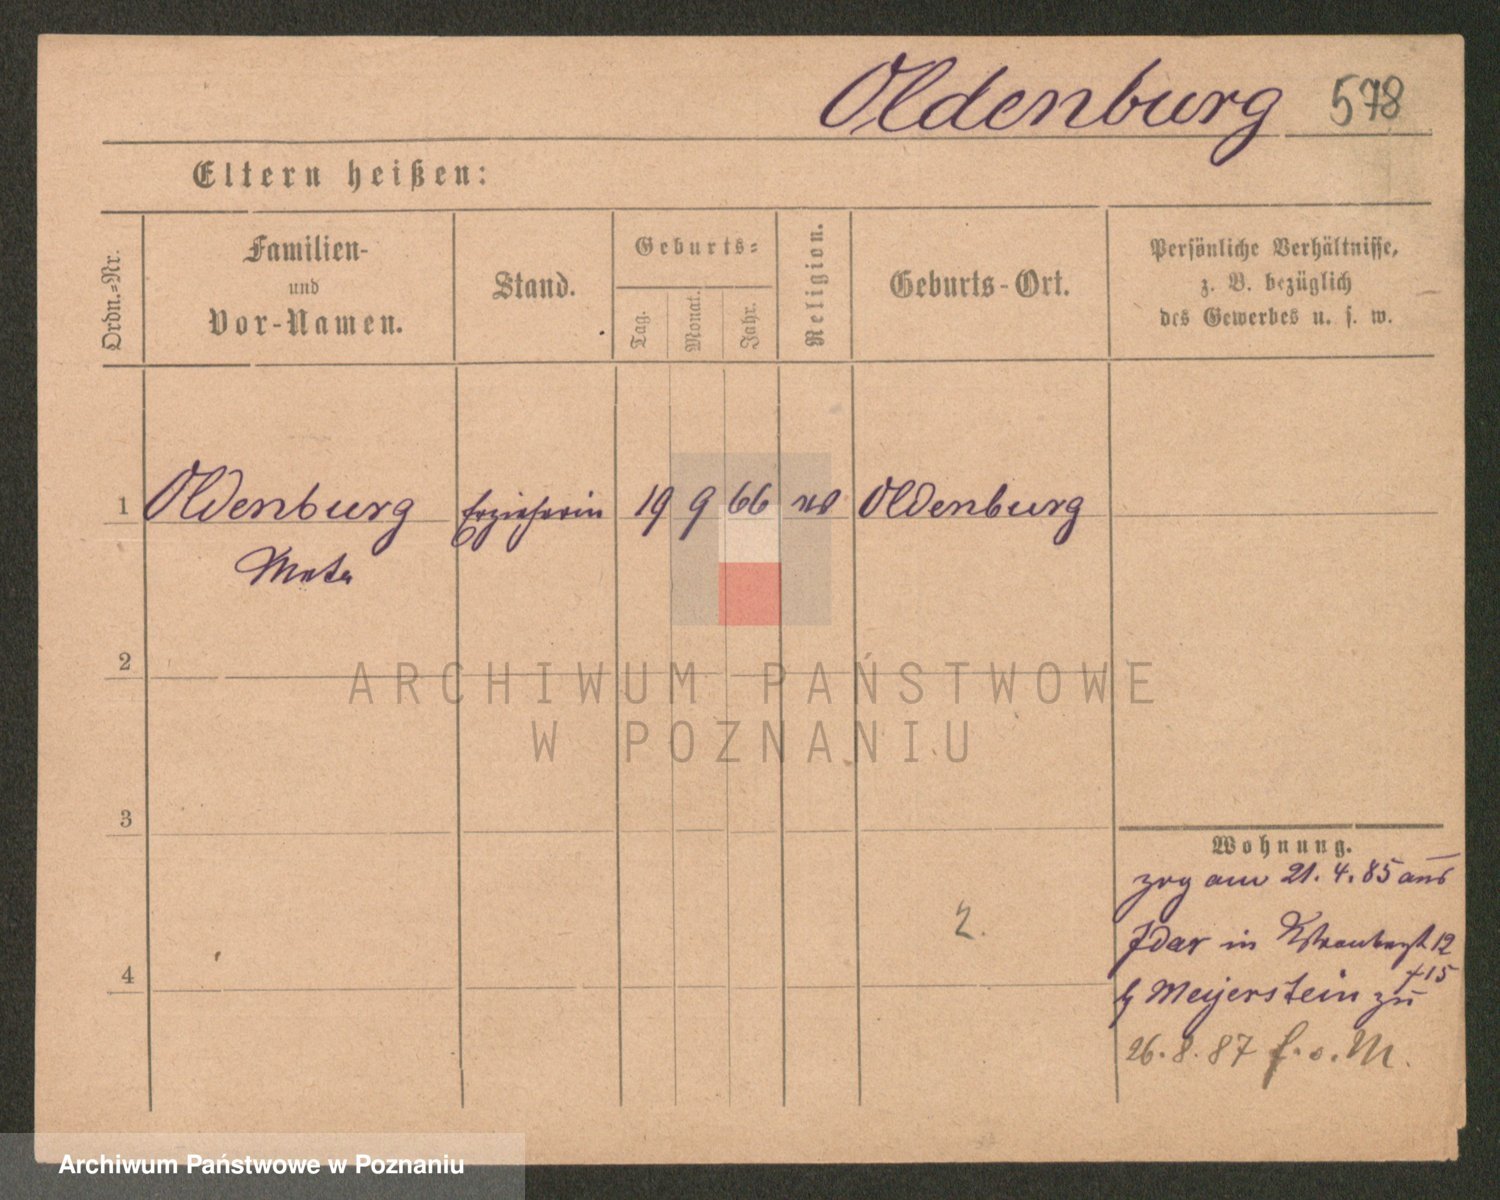 Oldenburg 578
Eltern heißen:
Ordn.-Nr.
Familien-
und
Vor-Namen.
Stand.
Geburts-
Tag.
Monat.
Jahr.
Religion.
Geburts-Ort.
Persönliche Verhältnisse,
z. B. bezüglich
des Gewerbes u. s. w.
1 Oldenburg Erzieherin 19 9 66 Oldenburg
Meta
2
3
4
Wohnung.
zog am 21.4.85 aus
Idar in 12
b Meyerstein zu
+15
26.8.87 f.o.M.
2.
ARCHIWUM PAŃSTWOWE
W POZNANIU
Archiwum Państwowe w Poznaniu